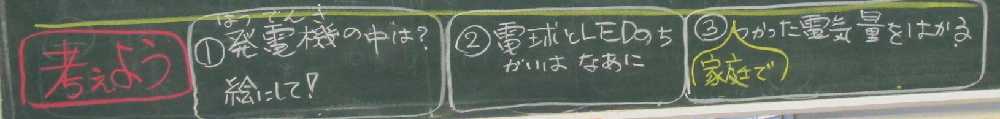 考えよう
はつでんき
①発電機の中は?
絵にして!
②電球とLEDのち
がいは なあに
③つかった電気量をはかる
家庭で